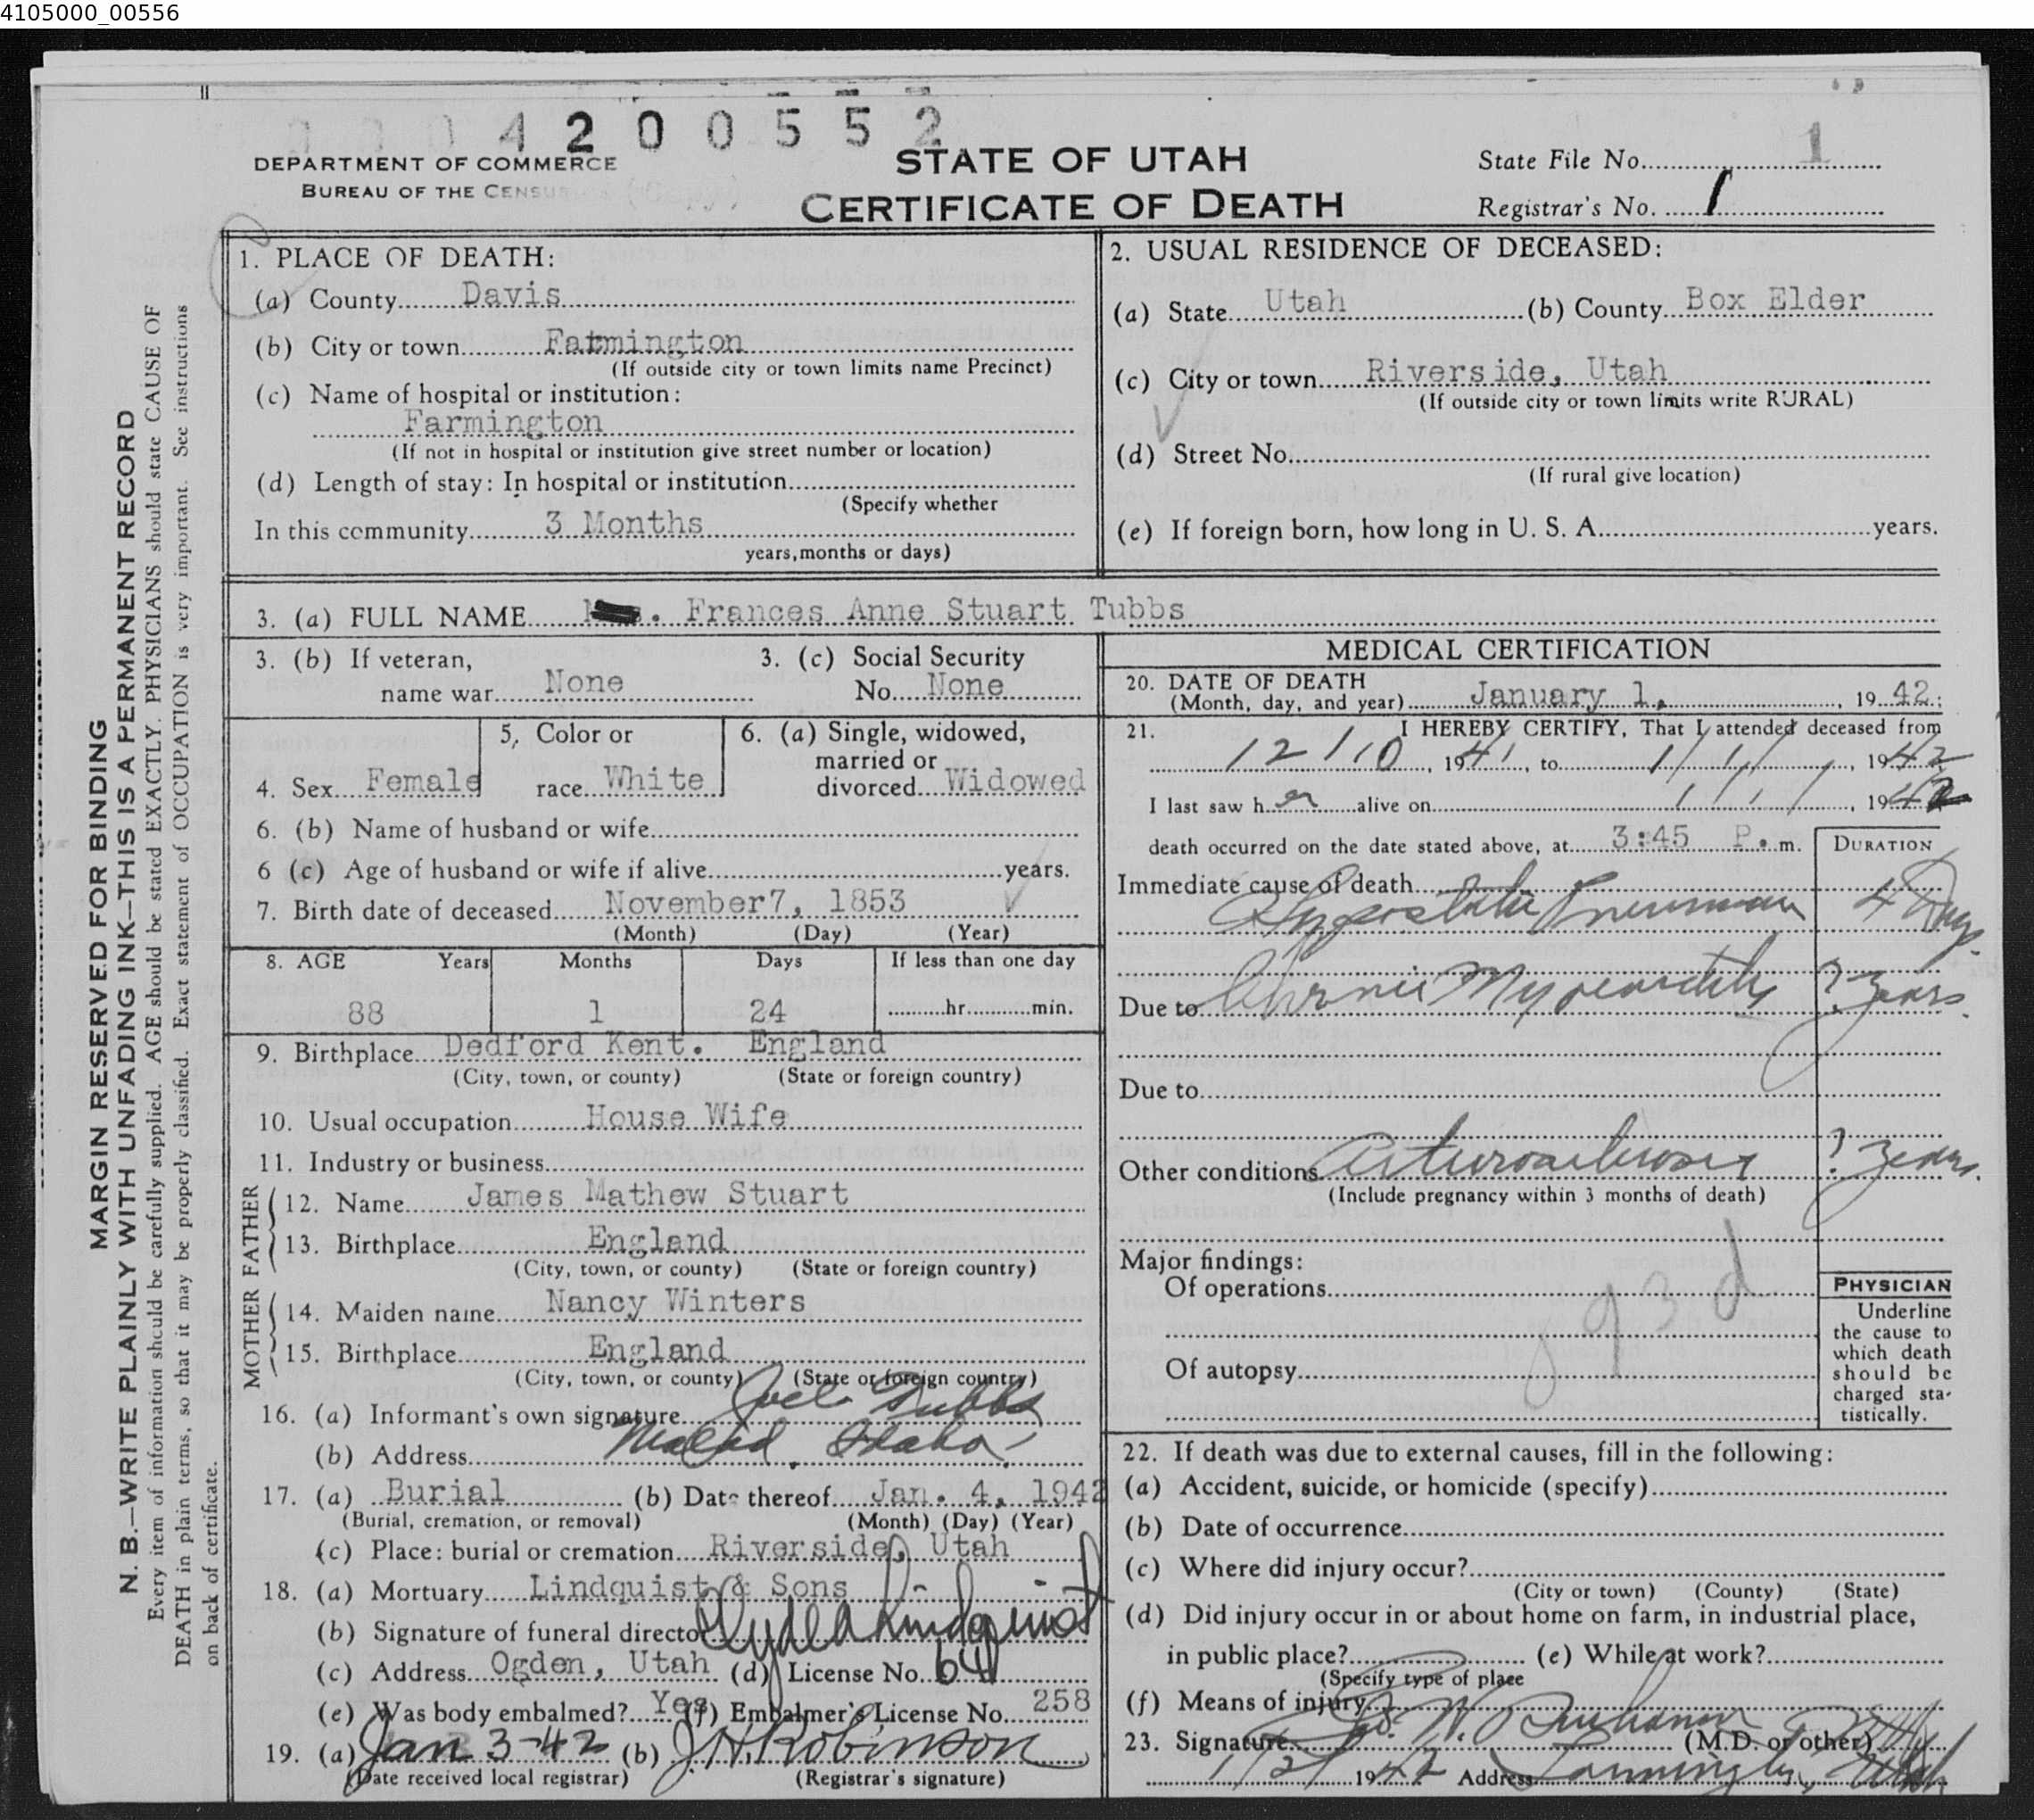 4105000_00556
4 2 0 0 5 5 2
DEPARTMENT OF COMMERCE
BUREAU OF THE CENSUS
STATE OF UTAH
CERTIFICATE OF DEATH
State File No. 1
Registrar's No. 1
MARGIN RESERVED FOR BINDING
N. B.—WRITE PLAINLY WITH UNFADING INK—THIS IS A PERMANENT RECORD
Every item of information should be carefully supplied. AGE should be stated EXACTLY. PHYSICIANS should state CAUSE OF
DEATH in plain terms, so that it may be properly classified. Exact statement of OCCUPATION is very important. See instructions
on back of certificate.
1. PLACE OF DEATH:
(a) County Davis
(b) City or town Farmington
(If outside city or town limits name Precinct)
(c) Name of hospital or institution:
Farmington
(If not in hospital or institution give street number or location)
(d) Length of stay: In hospital or institution
(Specify whether
In this community 3 Months
years, months or days)
2. USUAL RESIDENCE OF DECEASED:
(a) State Utah (b) County Box Elder
(c) City or town Riverside, Utah
(If outside city or town limits write RURAL)
(d) Street No.
(If rural give location)
(e) If foreign born, how long in U. S. A. years.
3. (a) FULL NAME . Frances Anne Stuart Tubbs
3. (b) If veteran,
name war None
3. (c) Social Security
No. None
4. Sex Female
5. Color or
race White
6. (a) Single, widowed,
married or
divorced Widowed
6. (b) Name of husband or wife
6 (c) Age of husband or wife if alive years.
7. Birth date of deceased November 7, 1853
(Month) (Day) (Year)
8. AGE Years Months Days If less than one day
88 1 24 hr. min.
9. Birthplace Dedford Kent. England
(City, town, or county) (State or foreign country)
10. Usual occupation House Wife
11. Industry or business
FATHER
12. Name James Mathew Stuart
13. Birthplace England
(City, town, or county) (State or foreign country)
MOTHER
14. Maiden name Nancy Winters
15. Birthplace England
(City, town, or county) (State or foreign country)
16. (a) Informant's own signature Joel Tubbs
(b) Address Malad, Idaho
17. (a) Burial (b) Date thereof Jan. 4, 1942
(Burial, cremation, or removal) (Month) (Day) (Year)
(c) Place: burial or cremation Riverside, Utah
18. (a) Mortuary Lindquist & Sons
(b) Signature of funeral director Clyde A Lindquist
(c) Address Ogden, Utah (d) License No. 64
(e) Was body embalmed? Yes (f) Embalmer's License No. 258
19. (a) Jan 3-42 (b) J. H. Robinson
(Date received local registrar) (Registrar's signature)
MEDICAL CERTIFICATION
20. DATE OF DEATH
(Month, day, and year) January 1, 1942:
21. I HEREBY CERTIFY, That I attended deceased from
12/10, 1941, to 1/1/, 1942
I last saw her alive on 1/1/, 1942
death occurred on the date stated above, at 3:45 P. m.
DURATION
Immediate cause of death
Hypostatic Pneumonia 4 Days
Due to Chronic Myocarditis ? years.
Due to
Other conditions Arteriosclerosis ? years.
(Include pregnancy within 3 months of death)
Major findings:
Of operations
93d
Of autopsy
PHYSICIAN
Underline
the cause to
which death
should be
charged sta-
tistically.
22. If death was due to external causes, fill in the following:
(a) Accident, suicide, or homicide (specify)
(b) Date of occurrence
(c) Where did injury occur?
(City or town) (County) (State)
(d) Did injury occur in or about home on farm, in industrial place,
in public place? (e) While at work?
(Specify type of place
(f) Means of injury
23. Signature W. Buchanan (M.D. or other)
1/2/ 1942 Address Farmington, Utah